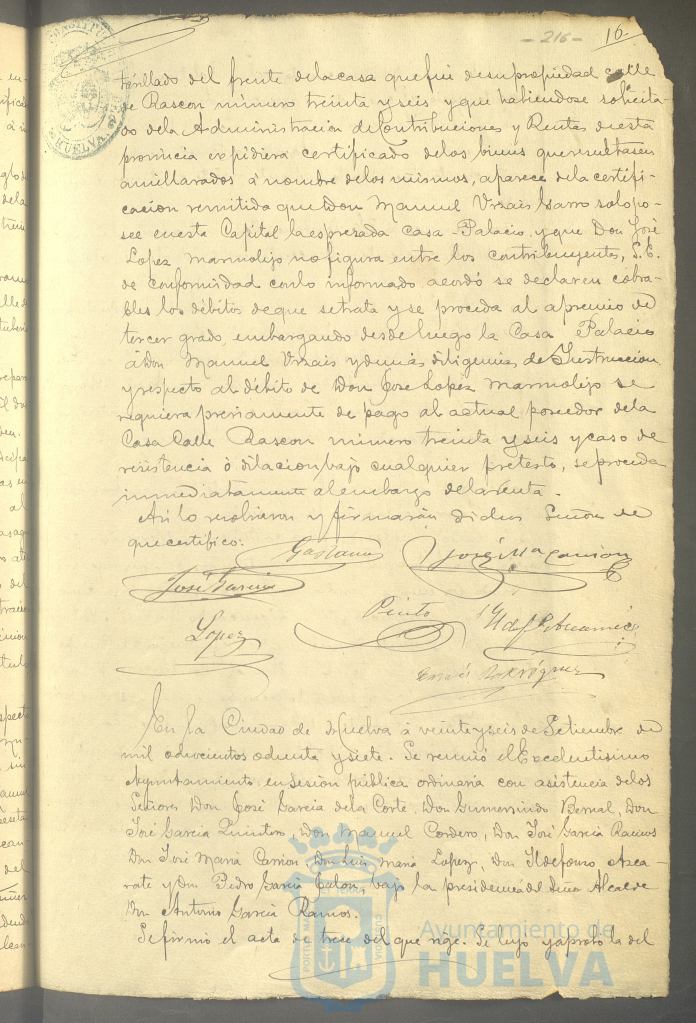 - 216 -
16.
tarillado del frente dela casa que fué de su propiedad calle
de Rascon número treinta y seis y que habiendose solicita-
do dela Administracion de Contribuciones y Rentas de esta
provincia expidiera certificado de los bienes que resultasen
amillarados á nombre de los mismos, aparece dela certifi-
cacion remitida que Don Manuel Vrzais Garro solo po-
see en esta Capital la espresada Casa-Palacio, y que Don José
Lopez Marmolijo no figura entre los contribuyentes, S. E.
de conformidad con lo informado acordó se declaren cobra-
bles los débitos de que se trata y se proceda al apremio de
tercer grado, embargando desde luego la Casa Palacio
á Don Manuel Vrzais y demás diligencias de Instruccion
y respecto al débito de Don José Lopez Marmolijo se
requiera previamente de pago al actual poseedor dela
Casa Calle Rascon número treinta y seis y caso de
resistencia ó dilacion bajo cualquier pretesto, se proceda
inmediatamente al embargo dela renta.
Asi lo resolvieron y firmarán dichos Señores de
que certifico:
José Mª Carrion
José Garcia
Pinto
Lopez
Rodríguez
En la Ciudad de Huelva á veinte y seis de Setiembre de
mil ochocientos ochenta y siete. Se reunió el Excelentisimo
Ayuntamiento en Sesión pública ordinaria con asistencia delos
Señores Don José Garcia dela Corte, Don Gumersindo Bernal, Don
José Garcia Quintero, Don Manuel Cordero, Don José García Ramos
Don José Maria Carrion, Don Luis Maria Lopez, Don Ildefonso Azca-
rate y Don Pedro Garcia Julon, bajo la presidencia del Señor Alcalde
Don Antonio García Ramos.
Se firmó el acta de trece del que rige. Se leyó y aprobó la del
Ayuntamiento de
HUELVA